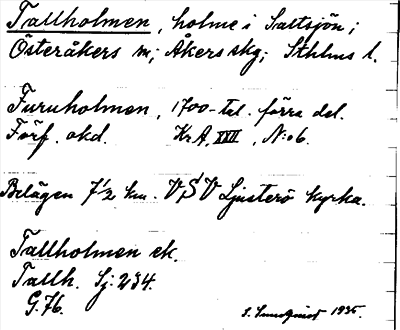 Tallholmen, holme i Saltsjön;
Österåkers sn; Åkers skg; Sthlms l.
Furuholmen, 1700-tal. förra del.
Förf. okd. Kr A, XXII, N:o 6.
Belägen 7½ km. VSV Ljusterö kyrka.
Tallholmen ek.
Tallh. Sj: 234.
G. 76.
S. Sundqvist 1935.